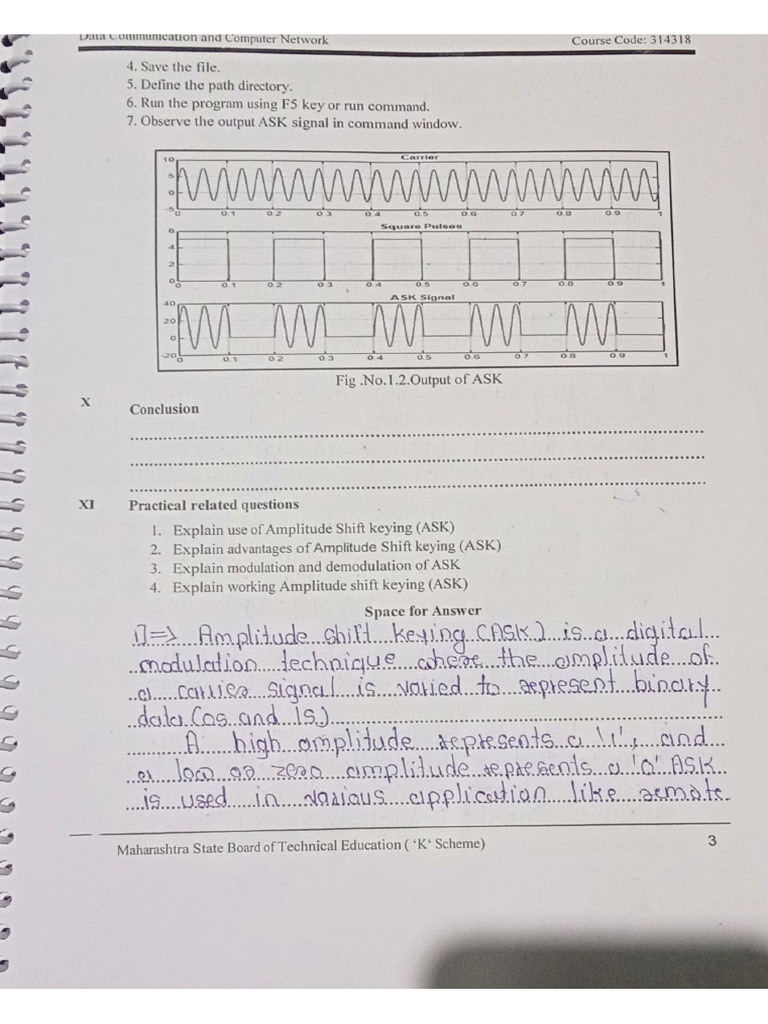 Data Communication and Computer Network Course Code: 314318
4. Save the file.
5. Define the path directory.
6. Run the program using F5 key or run command.
7. Observe the output ASK signal in command window.
Carrier
10
5
0
-5
0 0.1 0.2 0.3 0.4 0.5 0.6 0.7 0.8 0.9 1
Square Pulses
6
4
2
0
0 0.1 0.2 0.3 0.4 0.5 0.6 0.7 0.8 0.9 1
ASK Signal
40
20
0
-20
0 0.1 0.2 0.3 0.4 0.5 0.6 0.7 0.8 0.9 1
Fig .No.1.2.Output of ASK
X Conclusion
XI Practical related questions
1. Explain use of Amplitude Shift keying (ASK)
2. Explain advantages of Amplitude Shift keying (ASK)
3. Explain modulation and demodulation of ASK
4. Explain working Amplitude shift keying (ASK)
Space for Answer
1]=> Amplitude shift keying (ASK) is a digital
modulation technique where the amplitude of
a carrier signal is varied to represent binary
data (0s and 1s)
A high amplitude represents a '1', and
a low or zero amplitude represents a '0' ASK
is used in various application like remote
Maharashtra State Board of Technical Education ( 'K' Scheme) 3